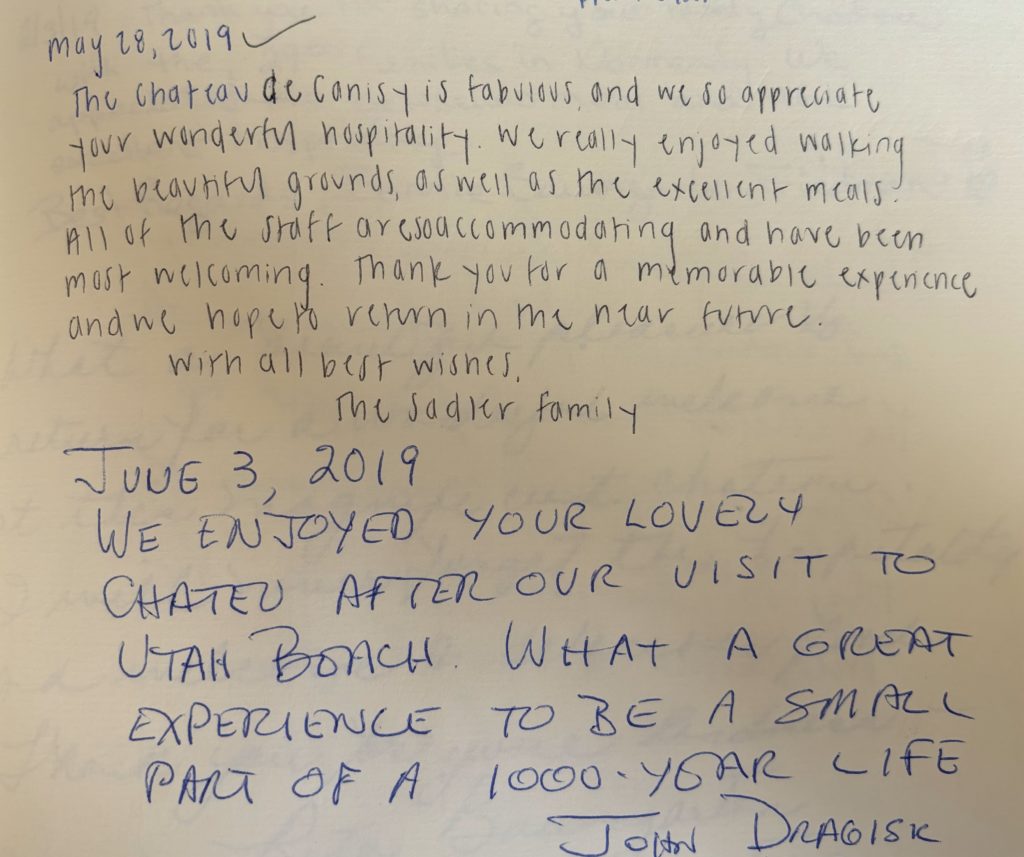 may 28, 2019 ✓
The Chateau de Canisy is fabulous, and we so appreciate
your wonderful hospitality. We really enjoyed walking
the beautiful grounds, as well as the excellent meals.
All of the staff are so accommodating and have been
most welcoming. Thank you for a memorable experience
and we hope to return in the near future.
With all best wishes,
The Sadler Family
JUNE 3, 2019
WE ENJOYED YOUR LOVELY
CHATEU AFTER OUR VISIT TO
UTAH BEACH. WHAT A GREAT
EXPERIENCE TO BE A SMALL
PART OF A 1000-YEAR LIFE
JOHN DRAGISK